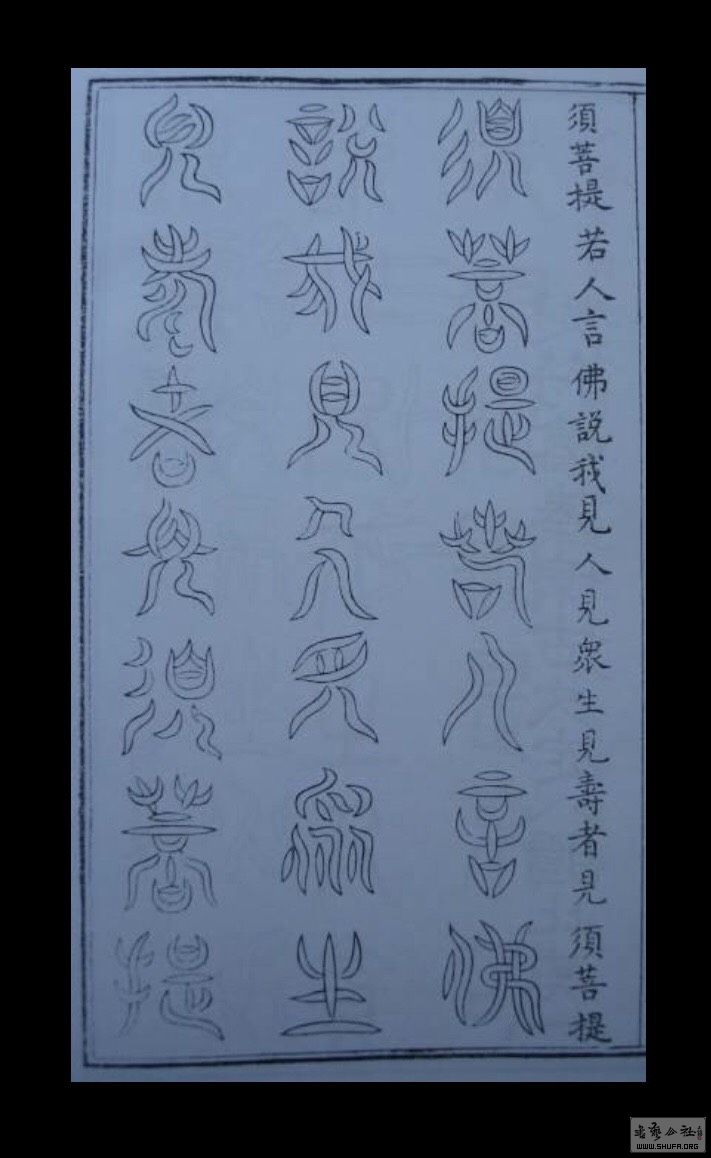 須菩提若人言佛説我見人見衆生見壽者見須菩提
須菩提若人言佛
説我見人見衆生
見壽者見須菩提
WWW.SHUFA.ORG